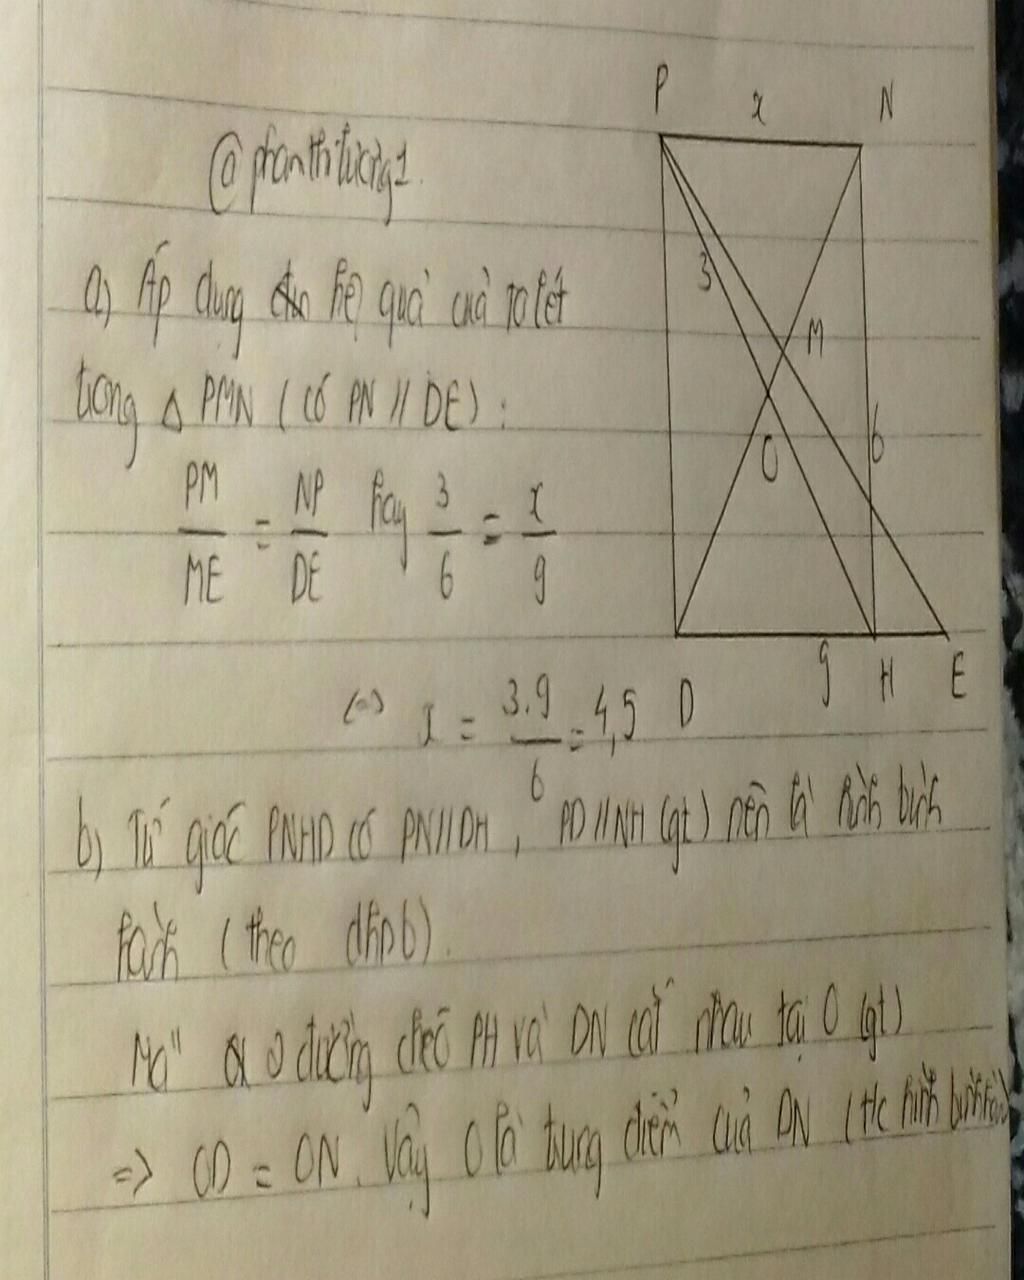 P x N
@phanthitường1.
3
a) Áp dụng hệ quả của ta lét
M
trong Δ PMN (có PN // DE) :
6
O
PM/ME = NP/DE hay 3/6 = x/9
D 9 H E
<=> x = 3.9/6 = 4,5
b) Tứ giác PNHD có PN//DH , PD//NH (gt) nên là hình bình
hành (theo dhnb).
Mà 2 đường chéo PH và DN cắt nhau tại O (gt)
=> OD = ON. Vậy O là trung điểm của DN (t/c hình bình hành)